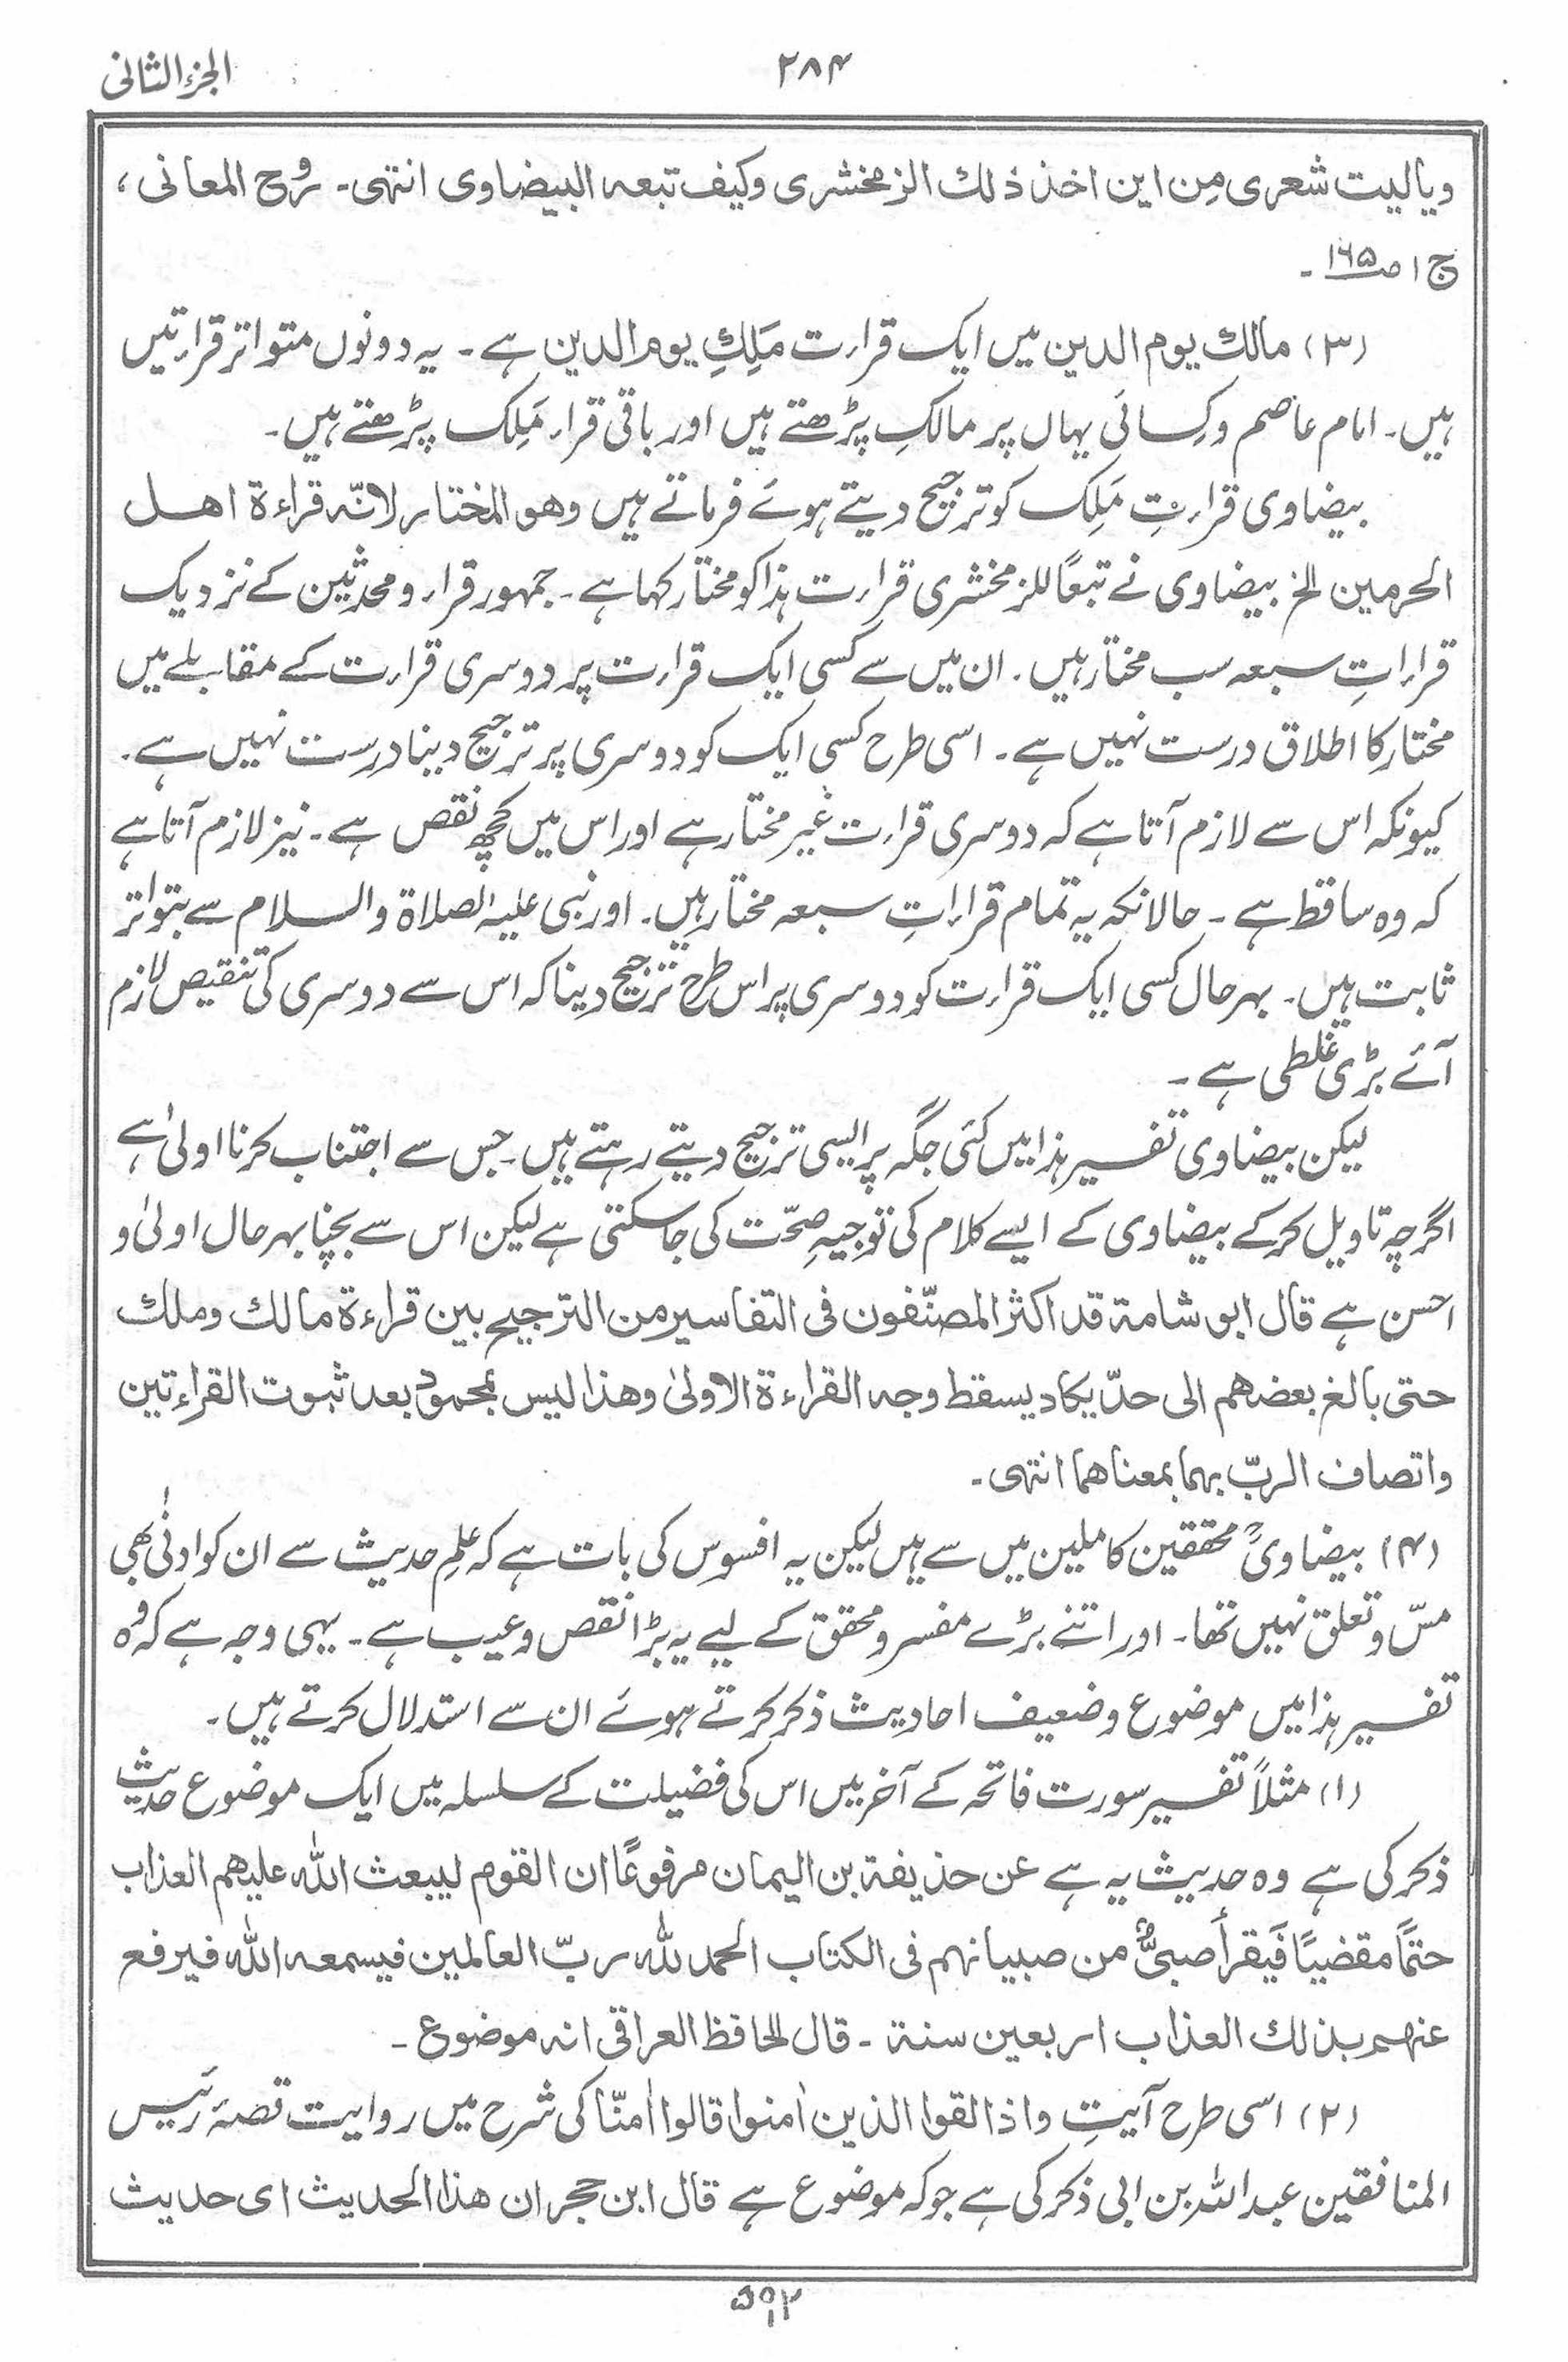 الجزء الثانی
۲۸۴
ویالیت شعری مِن این اخذ ذلك الزمخشری وکیف تبعه البیضاوی انتہی۔ رُوح المعانی ،
ج ۱ ص ۱۶۵ ۔
(۳) مالك یوم الدین میں ایک قرارت مَلِكِ یوم الدین ہے ۔ یہ دونوں متواتر قرارتیں
ہیں۔ امام عاصم و کِسائی یہاں پر مالکِ پڑھتے ہیں اور باقی قرار مَلِک پڑھتے ہیں۔
بیضاوی قرارتِ مَلِک کو ترجیح دیتے ہوئے فرماتے ہیں وهو المختار لانّه قراءة اهل
الحرمین الخ بیضاوی نے تبعًا للزمخشری قرارت ہذا کو مختار کہا ہے ۔ جمہور قرار و محدثین کے نزدیک
قراراتِ سبعہ سب مختار ہیں ۔ ان میں سے کسی ایک قرارت پر دوسری قرارت کے مقابلے میں
مختار کا اطلاق درست نہیں ہے ۔ اسی طرح کسی ایک کو دوسری پر ترجیح دینا درست نہیں ہے ۔
کیونکہ اس سے لازم آتا ہے کہ دوسری قرارت غیر مختار ہے اور اس میں کچھ نقص ہے ۔ نیز لازم آتا ہے
کہ وہ ساقط ہے ۔ حالانکہ یہ تمام قراراتِ سبعہ مختار ہیں۔ اور نبی علیہ الصلاۃ والسلام سے بتواتر
ثابت ہیں ۔ بہرحال کسی ایک قرارت کو دوسری پر اس طرح ترجیح دینا کہ اس سے دوسری کی تنقیص لازم
آئے بڑی غلطی ہے ۔
لیکن بیضاوی تفسیر ہذا میں کئی جگہ پر ایسی ترجیح دیتے رہتے ہیں ۔ جس سے اجتناب کرنا اولیٰ ہے
اگرچہ تاویل کرکے بیضاوی کے ایسے کلام کی توجیہِ صحّت کی جاسکتی ہے لیکن اس سے بچنا بہرحال اولیٰ و
احسن ہے قال ابو شامة قد اکثر المصنّفون فی التفاسیر من الترجیح بین قراءة مالك وملك
حتی بالغ بعضهم الی حدّ یکاد یسقط وجه القراءة الاولیٰ وهذا لیس بمحمود بعد ثبوت القراءتین
واتصاف الربّ بهما بمعناهما انتهی ۔
(۴) بیضاویؒ محققین کاملین میں سے ہیں لیکن یہ افسوس کی بات ہے کہ علمِ حدیث سے ان کو ادنٰی بھی
مسّ و تعلق نہیں تھا ۔ اور اتنے بڑے مفسر و محقق کے لیے یہ بڑا نقص و عیب ہے ۔ یہی وجہ ہے کہ وہ
تفسیر ہذا میں موضوع و ضعیف احادیث ذکر کرتے ہوئے ان سے استدلال کرتے ہیں ۔
(۱) مثلاً تفسیر سورت فاتحہ کے آخر میں اس کی فضیلت کے سلسلہ میں ایک موضوع حدیث
ذکر کی ہے وہ حدیث یہ ہے عن حذیفة بن الیمان مرفوعًا ان القوم لیبعث الله علیهم العذاب
حتمًا مقضیًا فَیقرأ صبیٌّ من صبیانهم فی الکتاب الحمد لله ربّ العالمین فیسمعه الله فیرفع
عنهم بذلك العذاب اربعین سنة ۔ قال الحافظ العراقی انه موضوع ۔
(۲) اسی طرح آیتِ واذا لقوا الذین اٰمنوا قالوا اٰمنّا کی شرح میں روایت قصۂ رئیس
المنافقین عبداللہ بن ابی ذکر کی ہے جو کہ موضوع ہے قال ابن حجر ان هذا الحدیث ای حدیث
۵۹۲